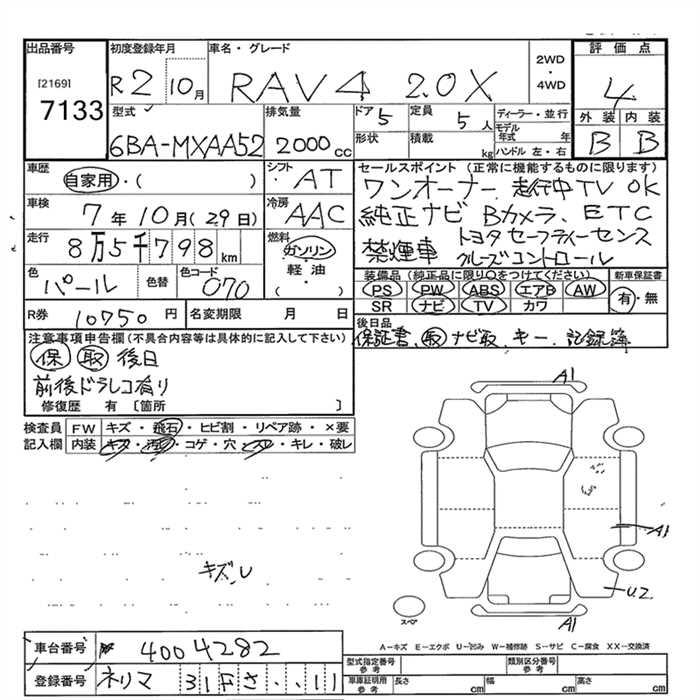 出品番号
[2169]
7133
初度登録年月
R2 10月
車名・グレード
RAV4 2.0X
2WD
・
4WD
評価点
4
外装 内装
B B
型式
6BA-MXAA52
排気量
2000cc
ドア 5
形状
定員 5人
積載 kg
ディーラー・並行
モデル年式 年
ハンドル 左・右
車歴
自家用・( )
車検
7年10月(29日)
走行
8万5千798km
色
パール
色替
色コード
070
シフト
AT
冷房
AAC
燃料
ガソリン
・
軽油
・
( )
セールスポイント(正常に機能するものに限ります)
ワンオーナー 走行中TV OK
純正ナビ Bカメラ、ETC
禁煙車 トヨタセーフティーセンス
クルーズコントロール
装備品(純正品に限り○をつけてください)
PS PW ABS エアB AW
SR ナビ TV カワ
新車保証書
有・無
R券 10750円
名変期限 月 日
後日品
保証書、取 ナビ取、キー、記録簿
注意事項申告欄(不具合内容等は具体的に記入して下さい)
保 取 後日
前後ドラレコ有り
修復歴 有〔箇所 〕
検査員
記入欄
FW キズ・飛石・ヒビ割・リペア跡・×要
内装 キズ・汚れ・コゲ・穴・スレ・キレ・破レ
キズ、U
A1
A1
U2
A1
スペア
A-キズ E-エクボ U-凹み W-補修跡 S-サビ C-腐食 XX-交換済
車台番号 4004282
登録番号 ネリマ 31F さ ・・11
型式指定番号
参考
類別区分番号
参考
車庫証明用
参考
長さ cm
幅 cm
高さ cm